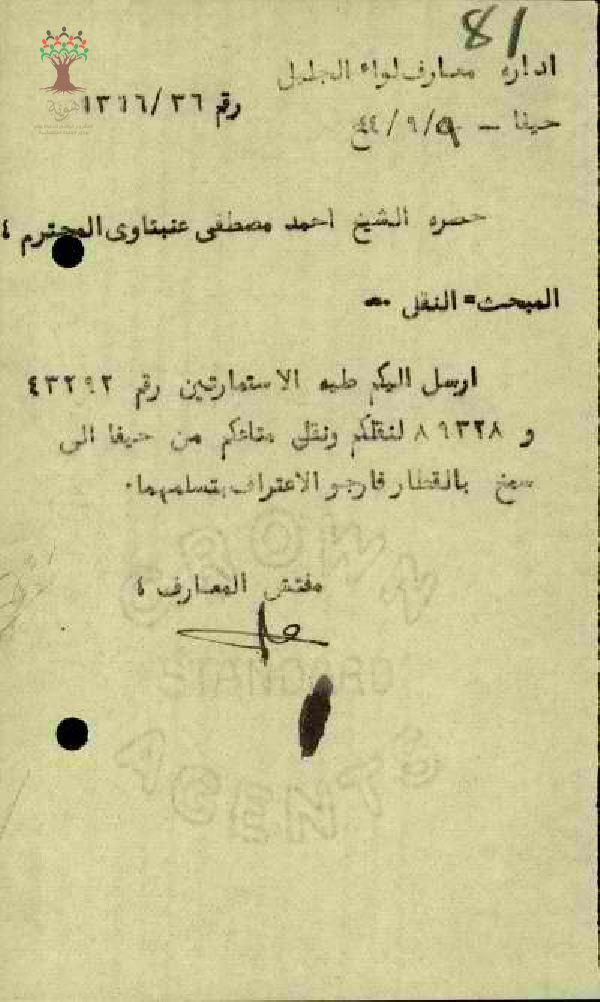 81
ادارة معارف لواء الجليل
رقم ١٣١٦/٣٦
حيفا – ٩/٩/٤٤
حضرة الشيخ احمد مصطفى عنبتاوى المحترم ٤
المبحث= النقل
ارسل اليكم طيه الاستمارتين رقم ٤٣٢٩٢
و ٨٩٣٢٨ لنقلكم ونقل متاعكم من حيفا الى
سمخ بالقطار فارجو الاعتراف بتسلمهما٠
مفتش المعارف ٤
CROWN
AGENTS
هوية